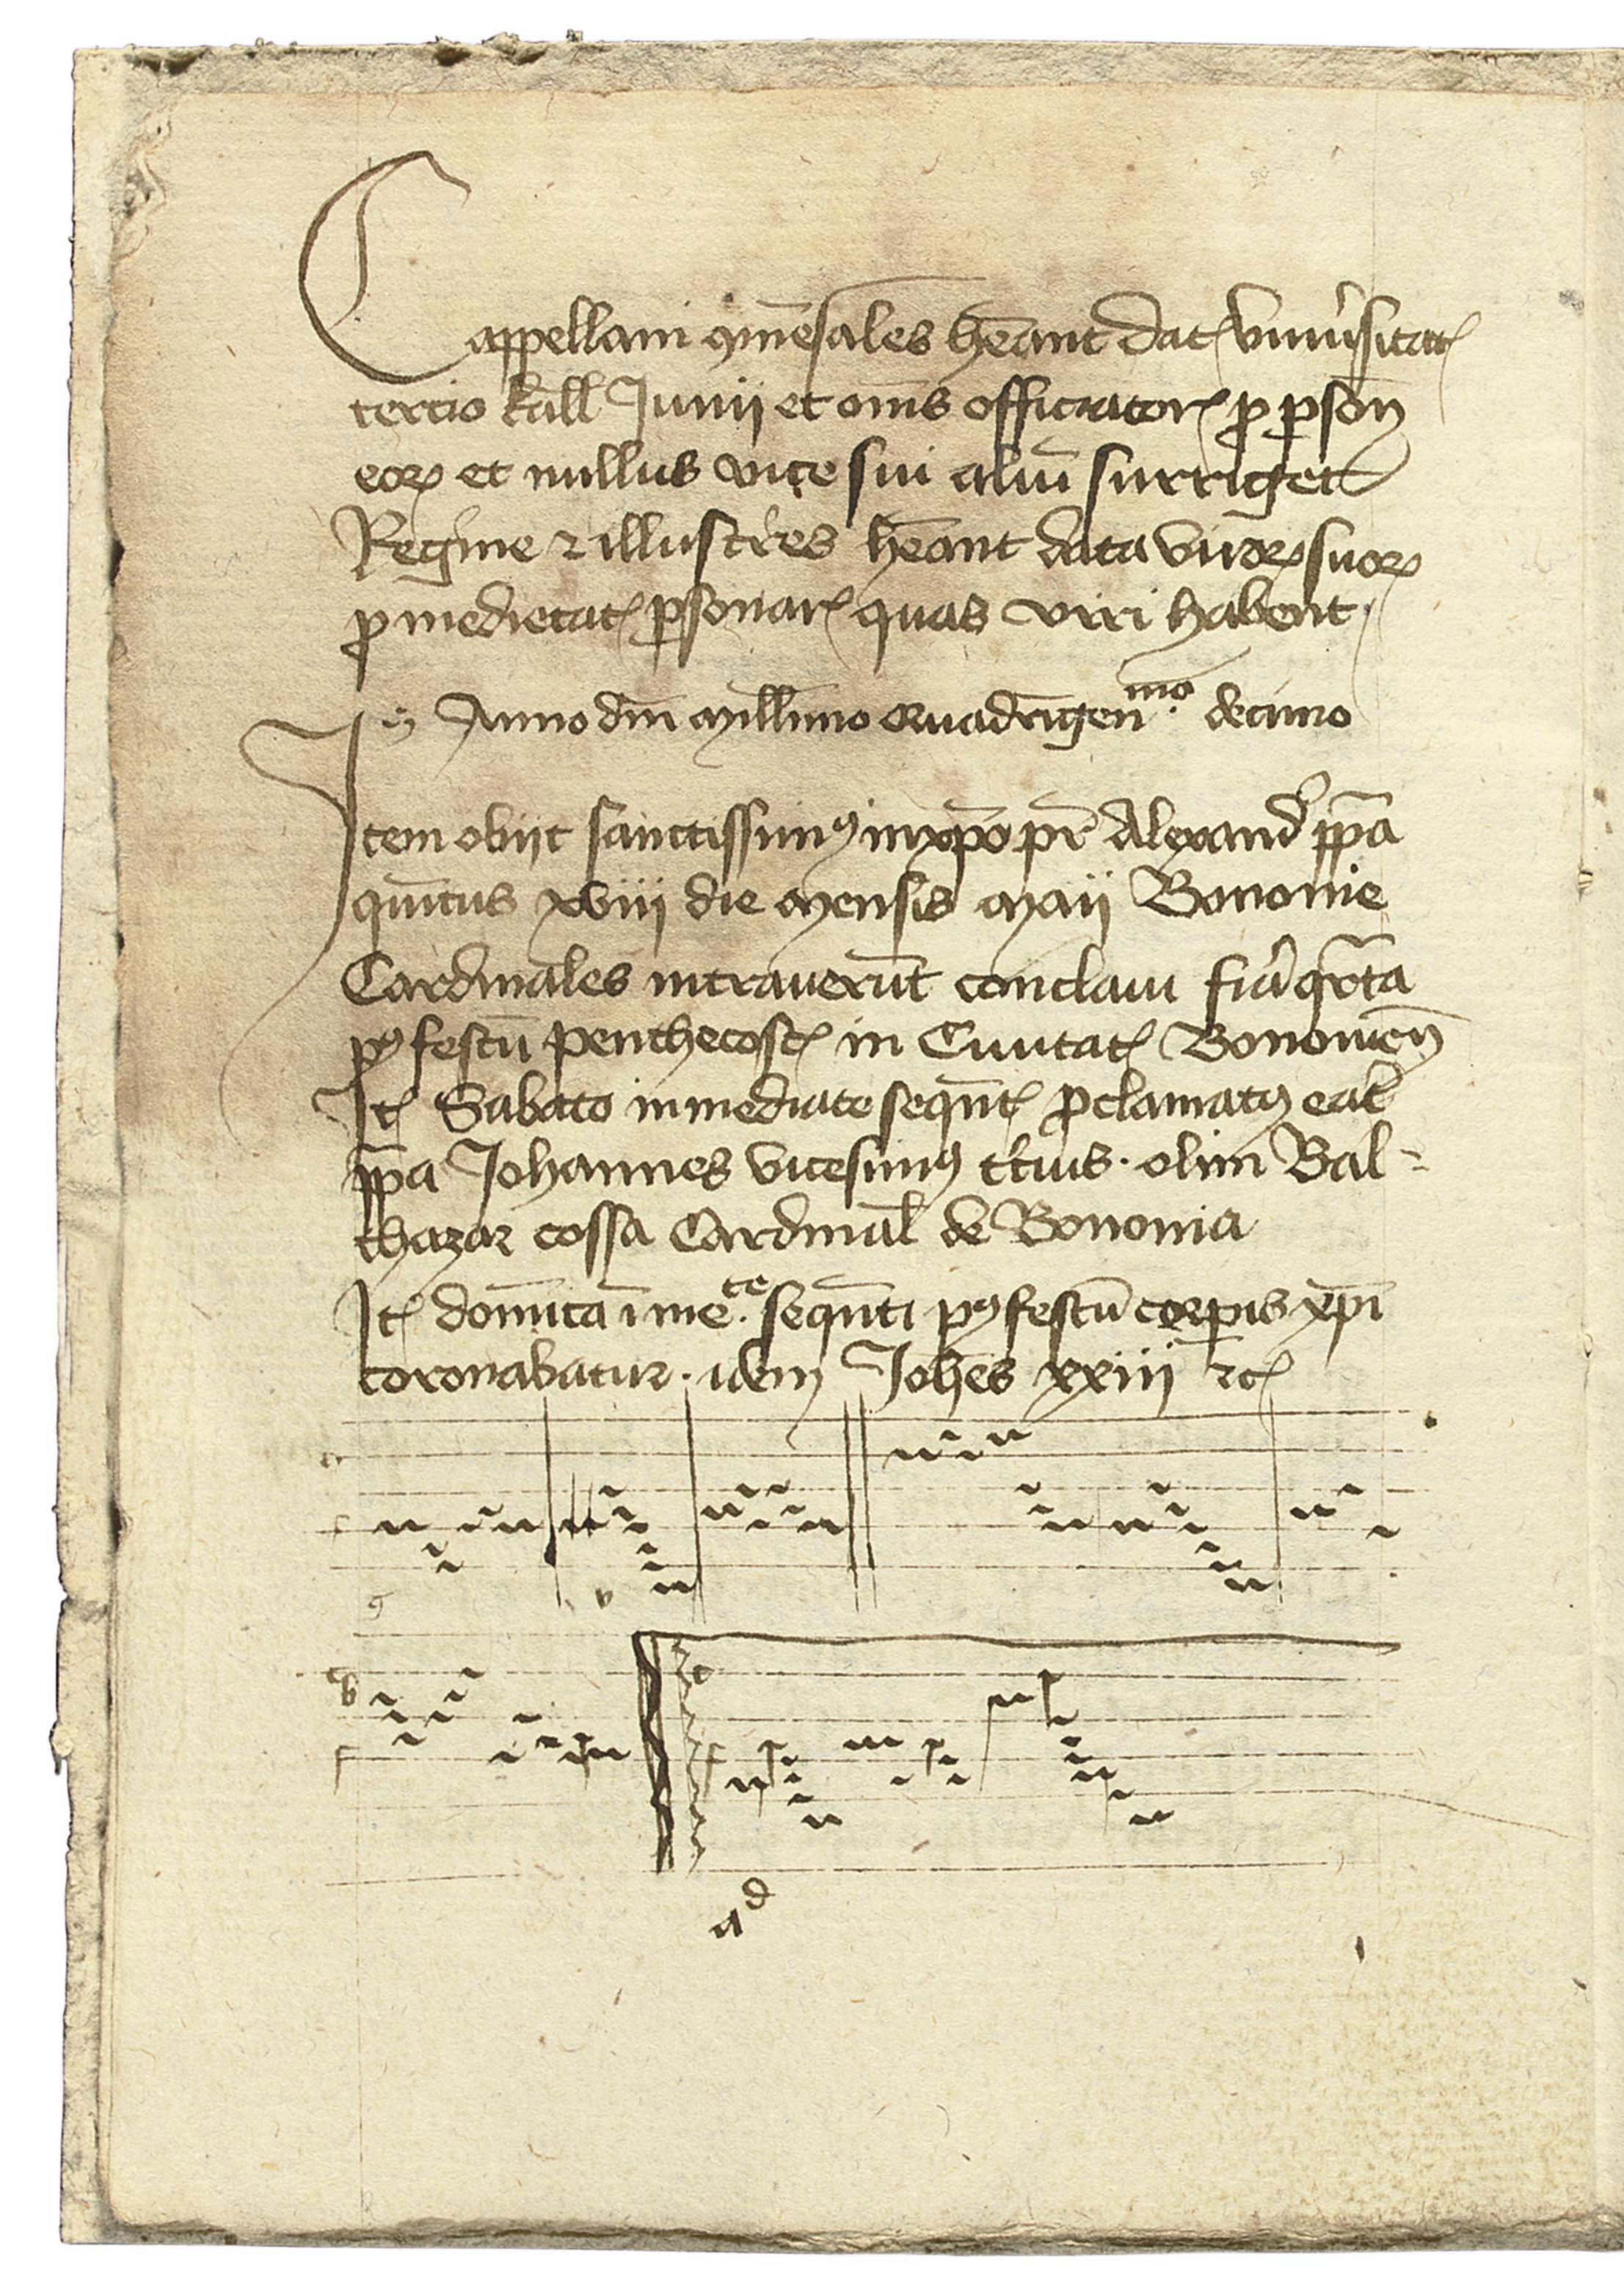 Cappellani ꝯmēsales hēant dat᷒ vniu̾sitat᷒
tercio kall Junij et om̄s officiatoꝝ ꝓ ꝑson̄
eoꝝ et nullus vice sui aliū surriget
Regine ⁊ illustres hēant data viroꝝ suoꝝ
ꝓ medietat᷒ ꝑsonaꝝ quas viri habent
Anno dm̄ Mill̄imo Quadringenᵐᵒ decimo
Item obijt sanctissimꝰ in xp̄o pr̄ Alexand̾ pp̄a
quītus xviij die Mensis Maij Bononie
Cardinales intrauerūt conclaui fi̾a qr̄ta
pꝰ festū penthecost᷒ in Ciuitat᷒ Bononien̄
It᷒ Sabato inmediate sequēt᷒ ꝓclamatꝰ erat
pp̄a Johannes vicesimꝰ tercius · olim Bal-
thazar cossa Cardinal̄ de Bononia
It᷒ domīca īmeᵗᵉ. sequēti pꝰ festū corꝑis xp̄i
coronabatur · idem Joh̄es xxiij ⁊c᷒
aᵈ